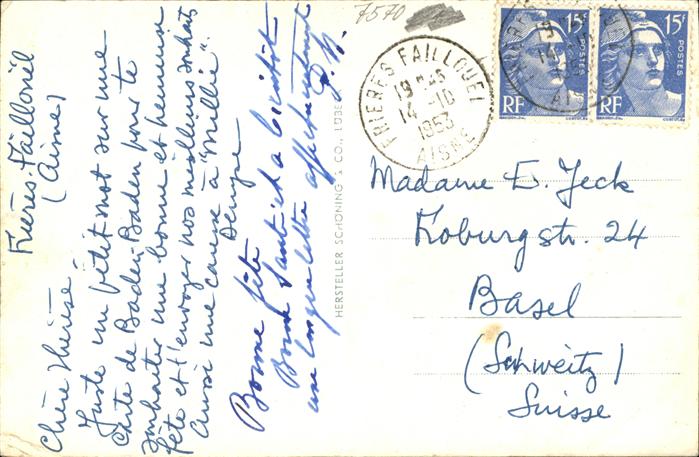 Frières-Faillouël
(Aisne)
Chère Thérèse
Juste un petit mot sur une
carte de Baden-Baden pour te
souhaiter une bonne et heureuse
fête et t'envoyer nos meilleurs souhaits
Aussi une caresse à "Millie".
Denyse
Bonne fête
Bonne santé et à bientôt
une longue lettre affectueusement
HERSTELLER SCHÖNING & CO., LÜBECK
7570
FRIERES FAILLOUEL
19 H45
14-10
1953
AISNE
15F
POSTES
RF
15F
POSTES
RF
Madame E. Jeck
Koburgstr. 24
Basel
(Schweitz)
Suisse